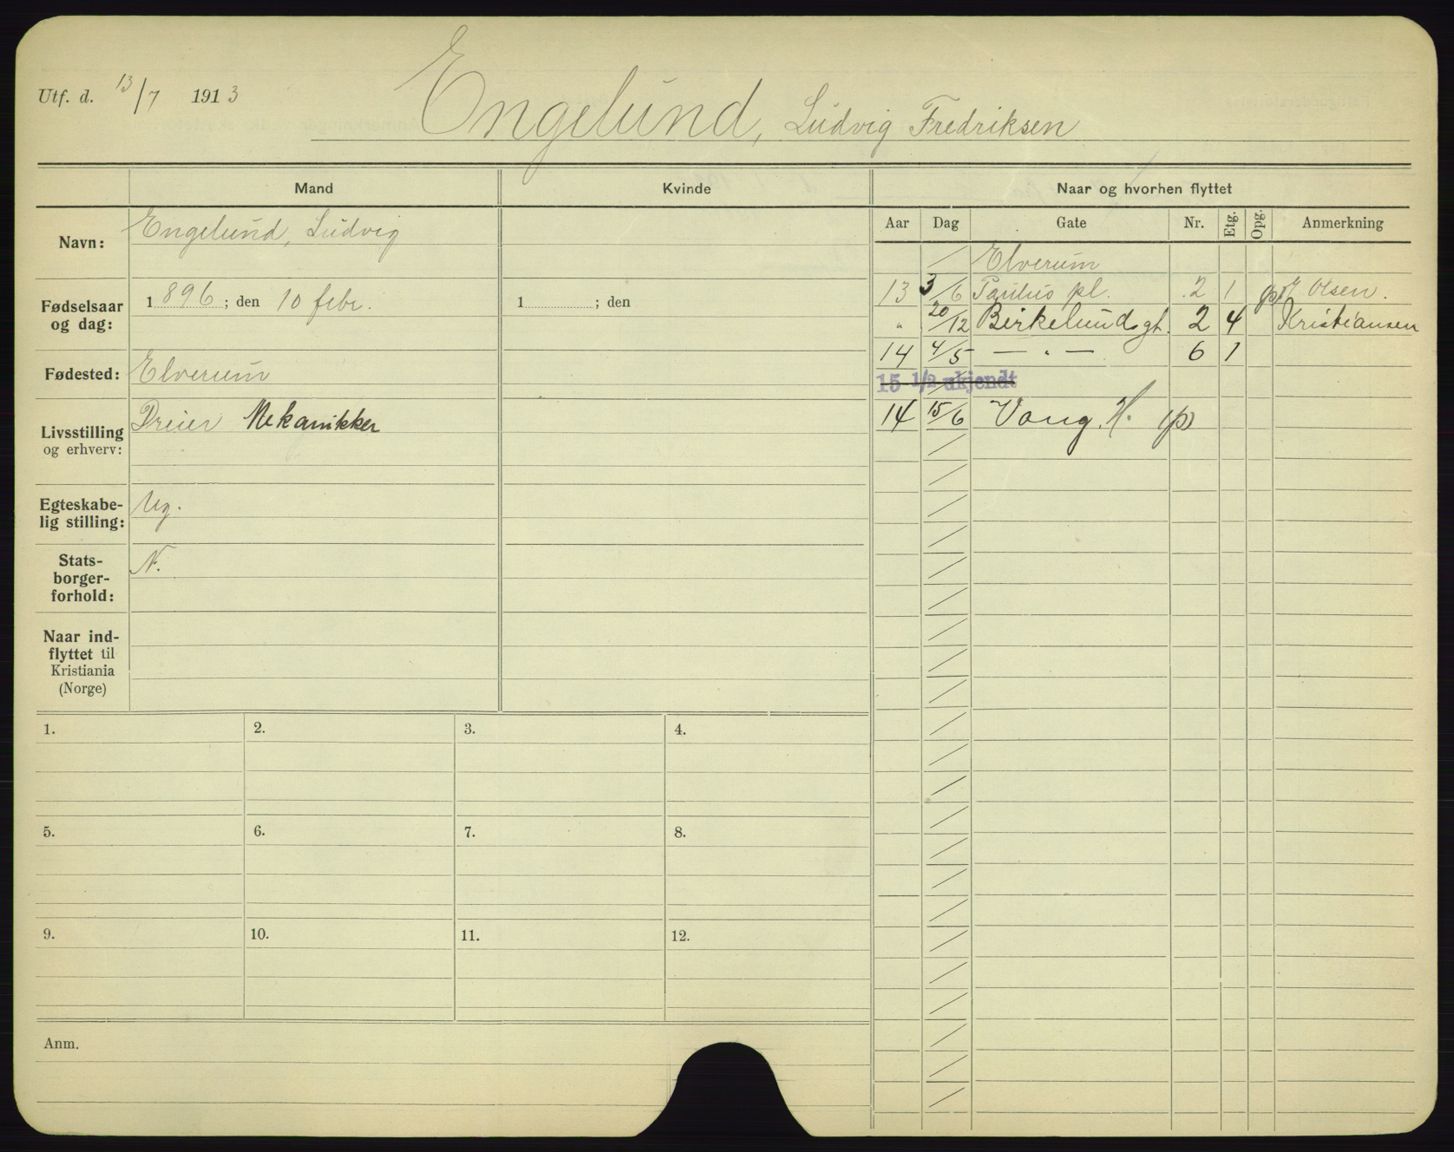 Utf. d. 13/7 1913
Engelund, Ludvig Fredriksen
Mand Kvinde Naar og hvorhen flyttet
Aar Dag Gate Nr. Etg. Opg. Anmerkning
Navn: Engelund, Ludvig
Fødselsaar og dag: 1896; den 10 febr. 1 ; den
Fødested: Elverum
Livsstilling og erhverv: Dreier Mekanikker
Egteskabe-
lig stilling: Ug.
Stats-
borger-
forhold: N.
Naar ind-
flyttet til
Kristiania
(Norge)
Elverum
13 3/6 Paulus pl. 2 1 Olsen.
" 20/12 Birkelundsgt. 2 4 Kristiansen
14 4/5 — " — 6 1
15 1/2 ukjendt
14 15/6 Vang. H.
1. 2. 3. 4.
5. 6. 7. 8.
9. 10. 11. 12.
Anm.